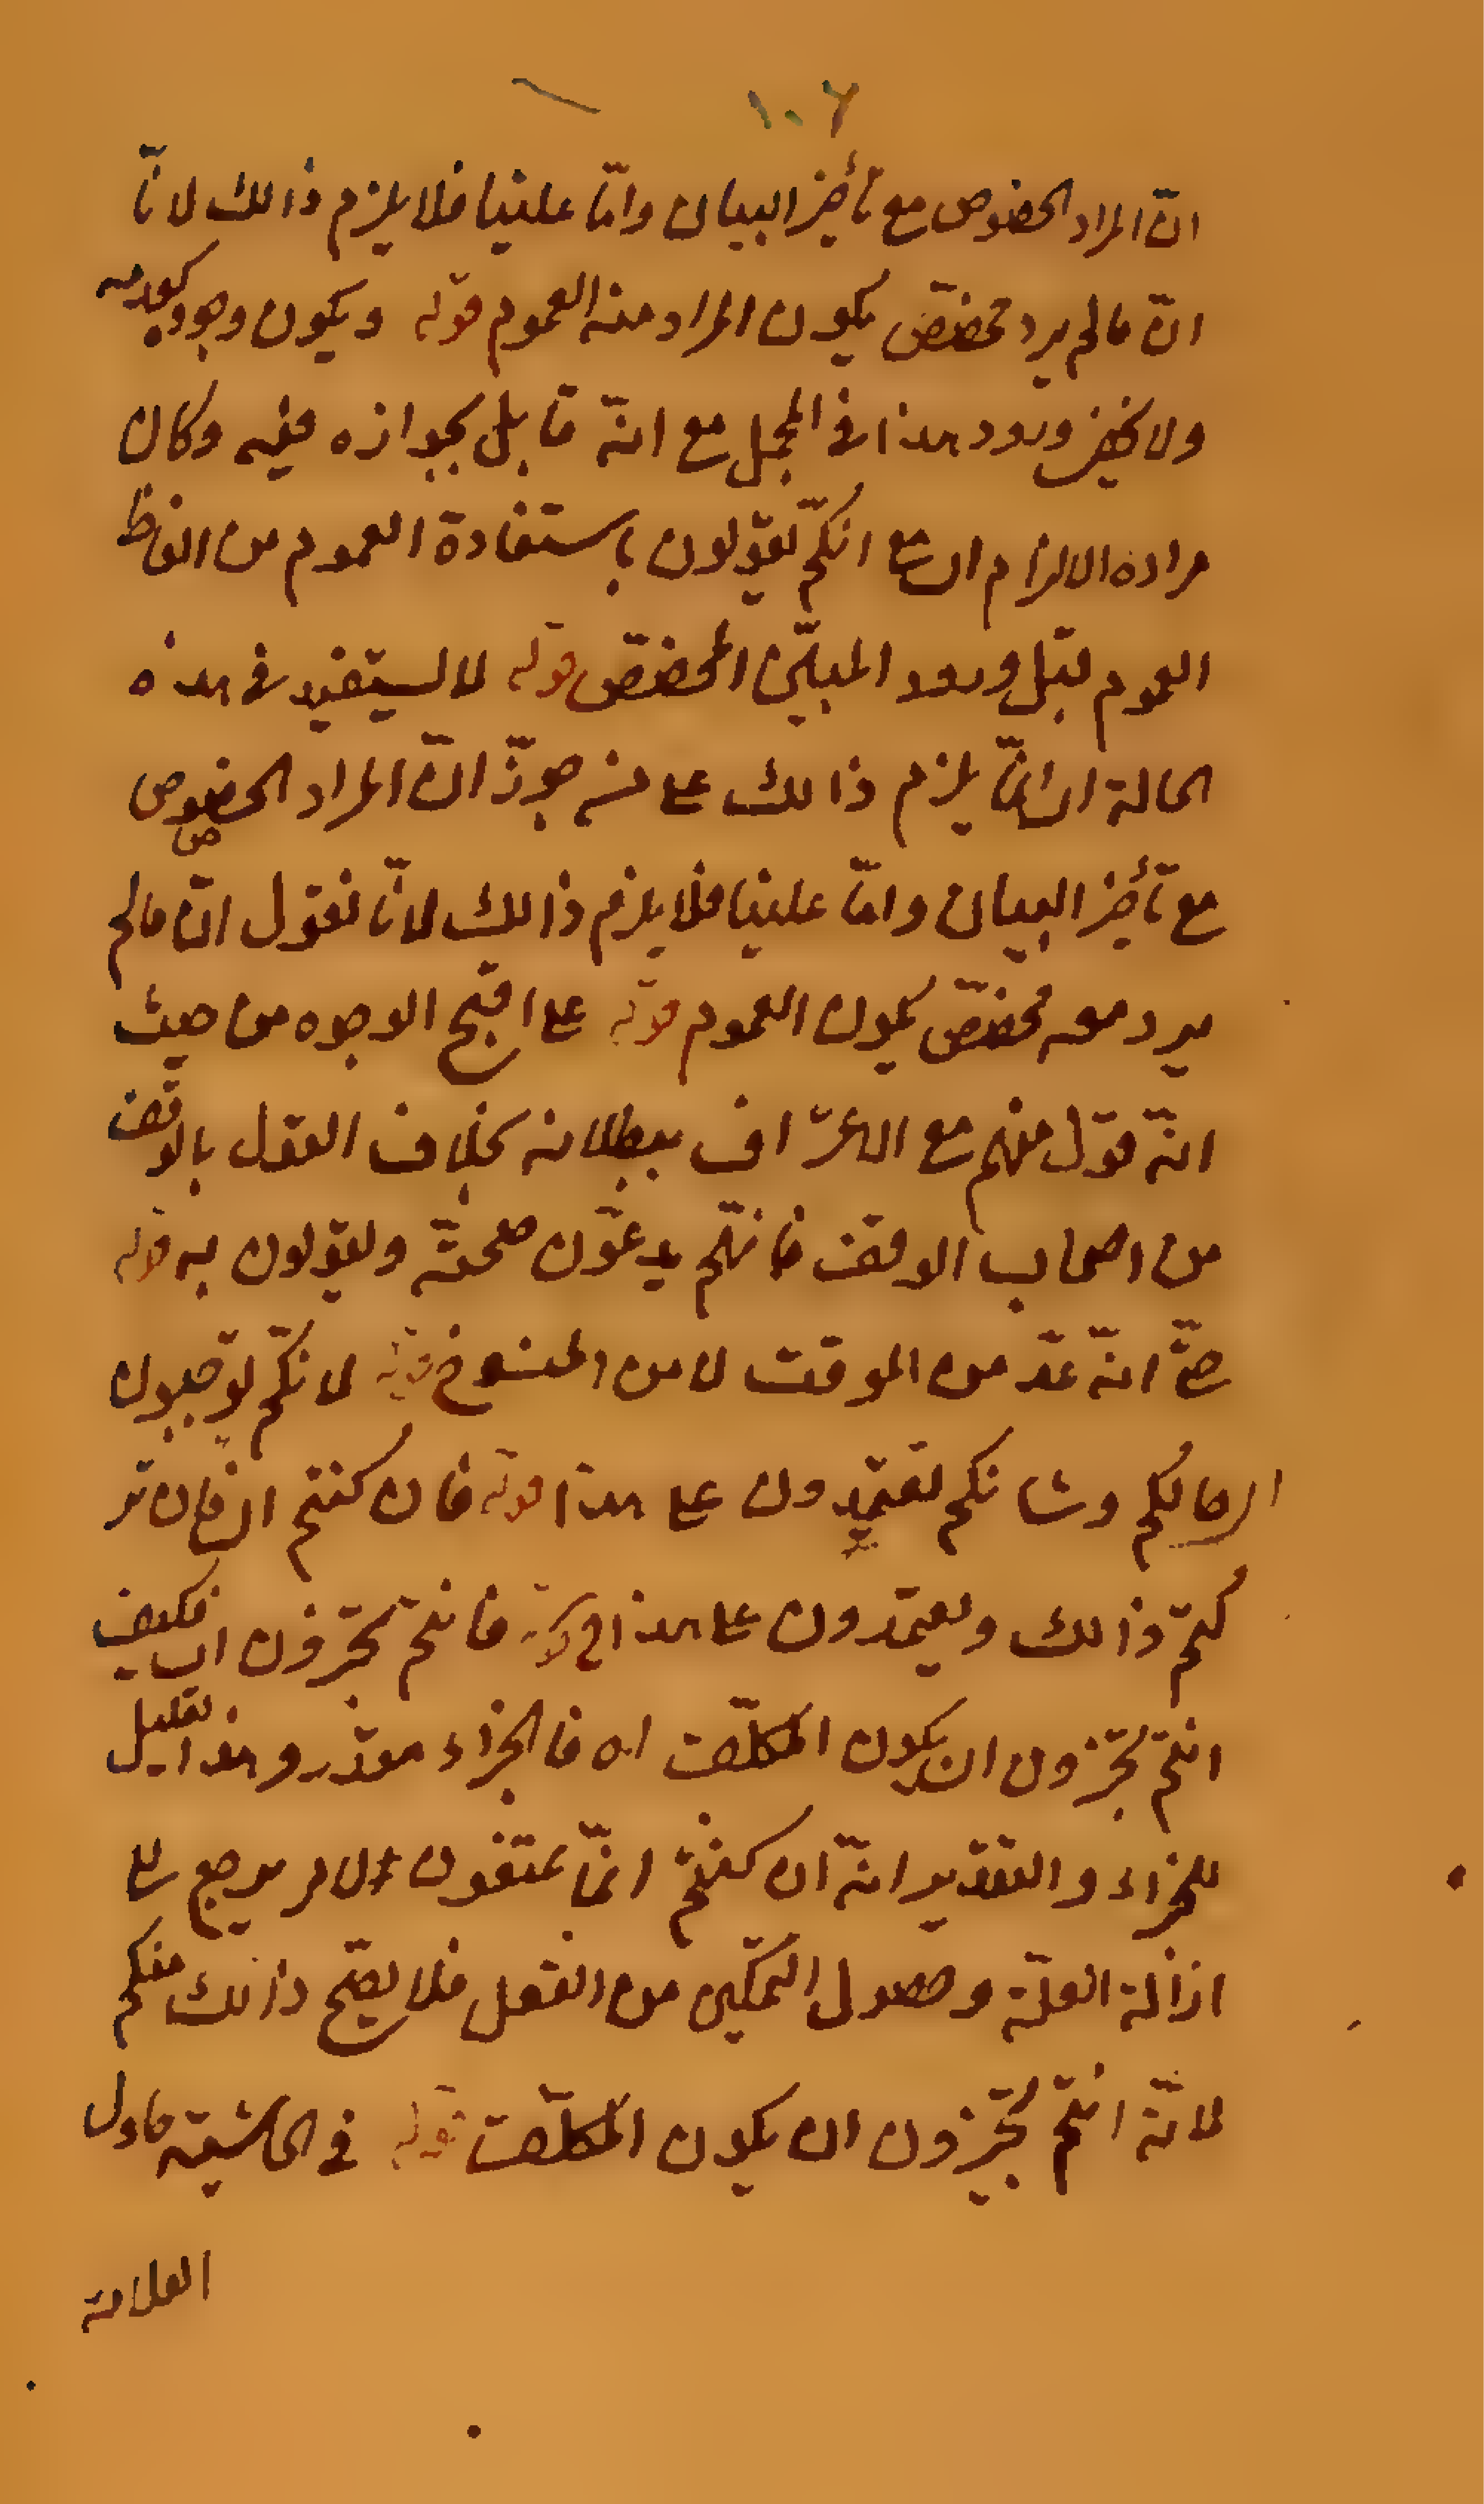 ١٠٦
انّ المراد الخصوص مع تأخير البيان وامّا علينا فلا يلزم ذالك لانّا
انّ مالم يرد مخصّص يكون المراد منه العموم قوله ويكون وجوده كعدمه
ولا يخفى ورود هذا في المجمل مع انّه قايل بجوازه فيه وكان
مراده الالزام اى على انكم تقولون باستفادة العموم من الفاظ
العموم قبل ورود المبيّن المخصّص قوله لا لستفيد في هذه
الحالة اى انّما يلزم ذالك على من جوّز انّ المراد الخصوص
مع تأخير البيان وامّا علينا فلا يلزم ذالك لانّا نقول انّ مالم
يرد معه مخصّص يكون العموم قوله على اقبح الوجوه من حيث
انّه قول منهم مع الاعتراف ببطلانه بخلاف القول بالوقف
من اصحاب الوقف فانّهم يدعّون صحّته ويقولون به قوله
حتّى انّه عدّ من الموقت لا من المنسوخ قوله لانّكم توجبون
حالكم وشانكم تعتمدون على هذا قوله فان كنتم اى فان
كنتم ذالك وتعتمدون على هذا فانتم تجوّزون اى فكيف
انتم تجوّزون ان يكون المكلّف اه فالجزاء مقدّر وهذا تعليل
للجزاء والتقدير انّه ان كنتم انّما تمنعون لامر يرجع الى
ازالة العلّة وحصول التمكّن من الفعل فلا يصحّ ذالك منكم
لانّه انتم تجوّزون ان يكون المكلّف قوله في الحاشية حاول
العلامة